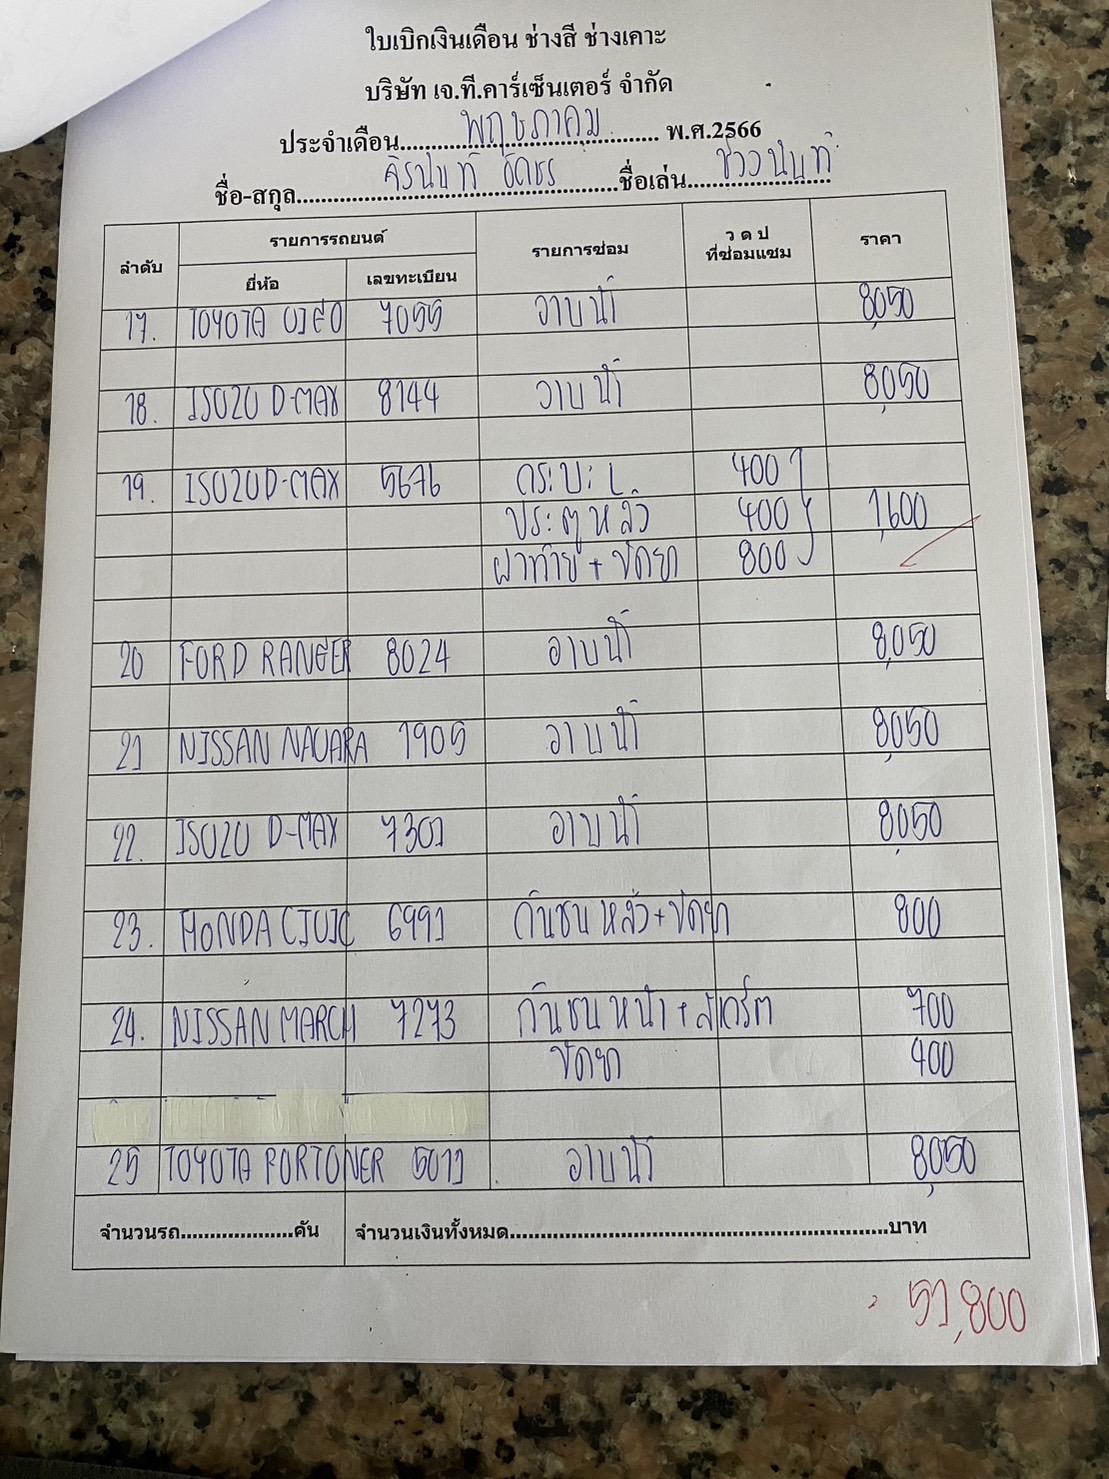 ใบเบิกเงินเดือน ช่างสี ช่างเคาะ
บริษัท เจ.ที.คาร์เซ็นเตอร์ จำกัด
ประจำเดือน....พฤษภาคม.... พ.ศ.2566
ชื่อ-สกุล........ชื่อเล่น........
ลำดับ รายการรถยนต์ รายการซ่อม ว ด ป ที่ซ่อมแซม ราคา
ยี่ห้อ เลขทะเบียน
17. TOYOTA VIGO 7055 อาบน้ำ 8,050
18. ISUZU D-MAX 8144 อาบน้ำ 8,050
19. ISUZU D-MAX 5676 กระบะ L 400
ประตูหลัง 400 1,600
ฝาท้าย + ขัดยา 800
20 FORD RANGER 8024 อาบน้ำ 8,050
21 NISSAN NAVARA 1905 อาบน้ำ 8,050
22. ISUZU D-MAX 7301 อาบน้ำ 8,050
23. HONDA CIVIC 6991 กันชนหลัง+ขัดยา 800
24. NISSAN MARCH 7273 กันชนหน้า + สเกิร์ต 700
ขัดยา 400
25 TOYOTA FORTONER 5011 อาบน้ำ 8,050
จำนวนรถ...................คัน จำนวนเงินทั้งหมด..............................................................บาท
51,800